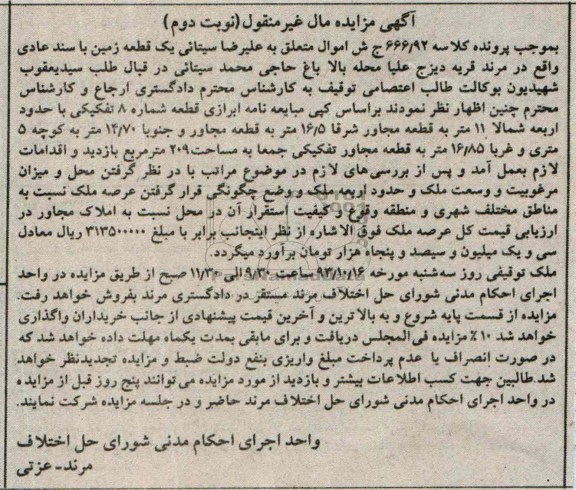 آگهی مزایده مال غیرمنقول(نوبت دوم)
بموجب پرونده کلاسه ۶۶۶/۹۲ ج ش اموال متعلق به علیرضا سیتائی یک قطعه زمین با سند عادی
واقع در مرند قریه دیزج علیا محله بالا باغ حاجی محمد سیتائی در قبال طلب سیدیعقوب
شهیدیون بوکالت طالب اعتصامی توقیف به کارشناس محترم دادگستری ارجاع و کارشناس
محترم چنین اظهار نظر نمودند براساس کپی مبایعه نامه ابرازی قطعه شماره ۸ تفکیکی با حدود
اربعه شمالا ۱۱ متر به قطعه مجاور شرقا ۱۶/۵ متر به قطعه مجاور و جنوبا ۱۴/۷۰ متر به کوچه ۵
متری و غربا ۱۶/۸۵ متر به قطعه مجاور تفکیکی جمعا به مساحت ۲۰۹ مترمربع بازدید و اقدامات
لازم بعمل آمد و پس از بررسی‌های لازم در موضوع مراتب با در نظر گرفتن محل و میزان
مرغوبیت و وسعت ملک و حدود اربعه ملک و وضع چگونگی قرار گرفتن عرصه ملک نسبت به
مناطق مختلف شهری و منطقه وقوع و کیفیت استقرار آن در محل نسبت به املاک مجاور در
ارزیابی قیمت کل عرصه ملک فوق الاشاره از نظر اینجانب برابر با مبلغ ۳۱۳۵۰۰۰۰۰ ریال معادل
سی و یک میلیون و سیصد و پنجاه هزار تومان برآورد میگردد.
ملک توقیفی روز سه‌شنبه مورخه ۹۳/۱۰/۱۶ ساعت ۹/۳۰ الی ۱۱/۳۰ صبح از طریق مزایده در واحد
اجرای احکام مدنی شورای حل اختلاف مرند مستقر در دادگستری مرند بفروش خواهد رفت.
مزایده از قسمت پایه شروع و به بالاترین و آخرین قیمت پیشنهادی از جانب خریداران واگذاری
خواهد شد ۱۰٪ مزایده فی‌المجلس دریافت و برای مابقی بمدت یکماه مهلت داده خواهد شد که
در صورت انصراف یا عدم پرداخت مبلغ واریزی بنفع دولت ضبط و مزایده تجدیدنظر خواهد
شد.طالبین جهت کسب اطلاعات بیشتر و بازدید از مورد مزایده می‌توانند پنج روز قبل از مزایده
در واحد اجرای احکام مدنی شورای حل اختلاف مرند حاضر و در جلسه مزایده شرکت نمایند.
واحد اجرای احکام مدنی شورای حل اختلاف
مرند-عزتی